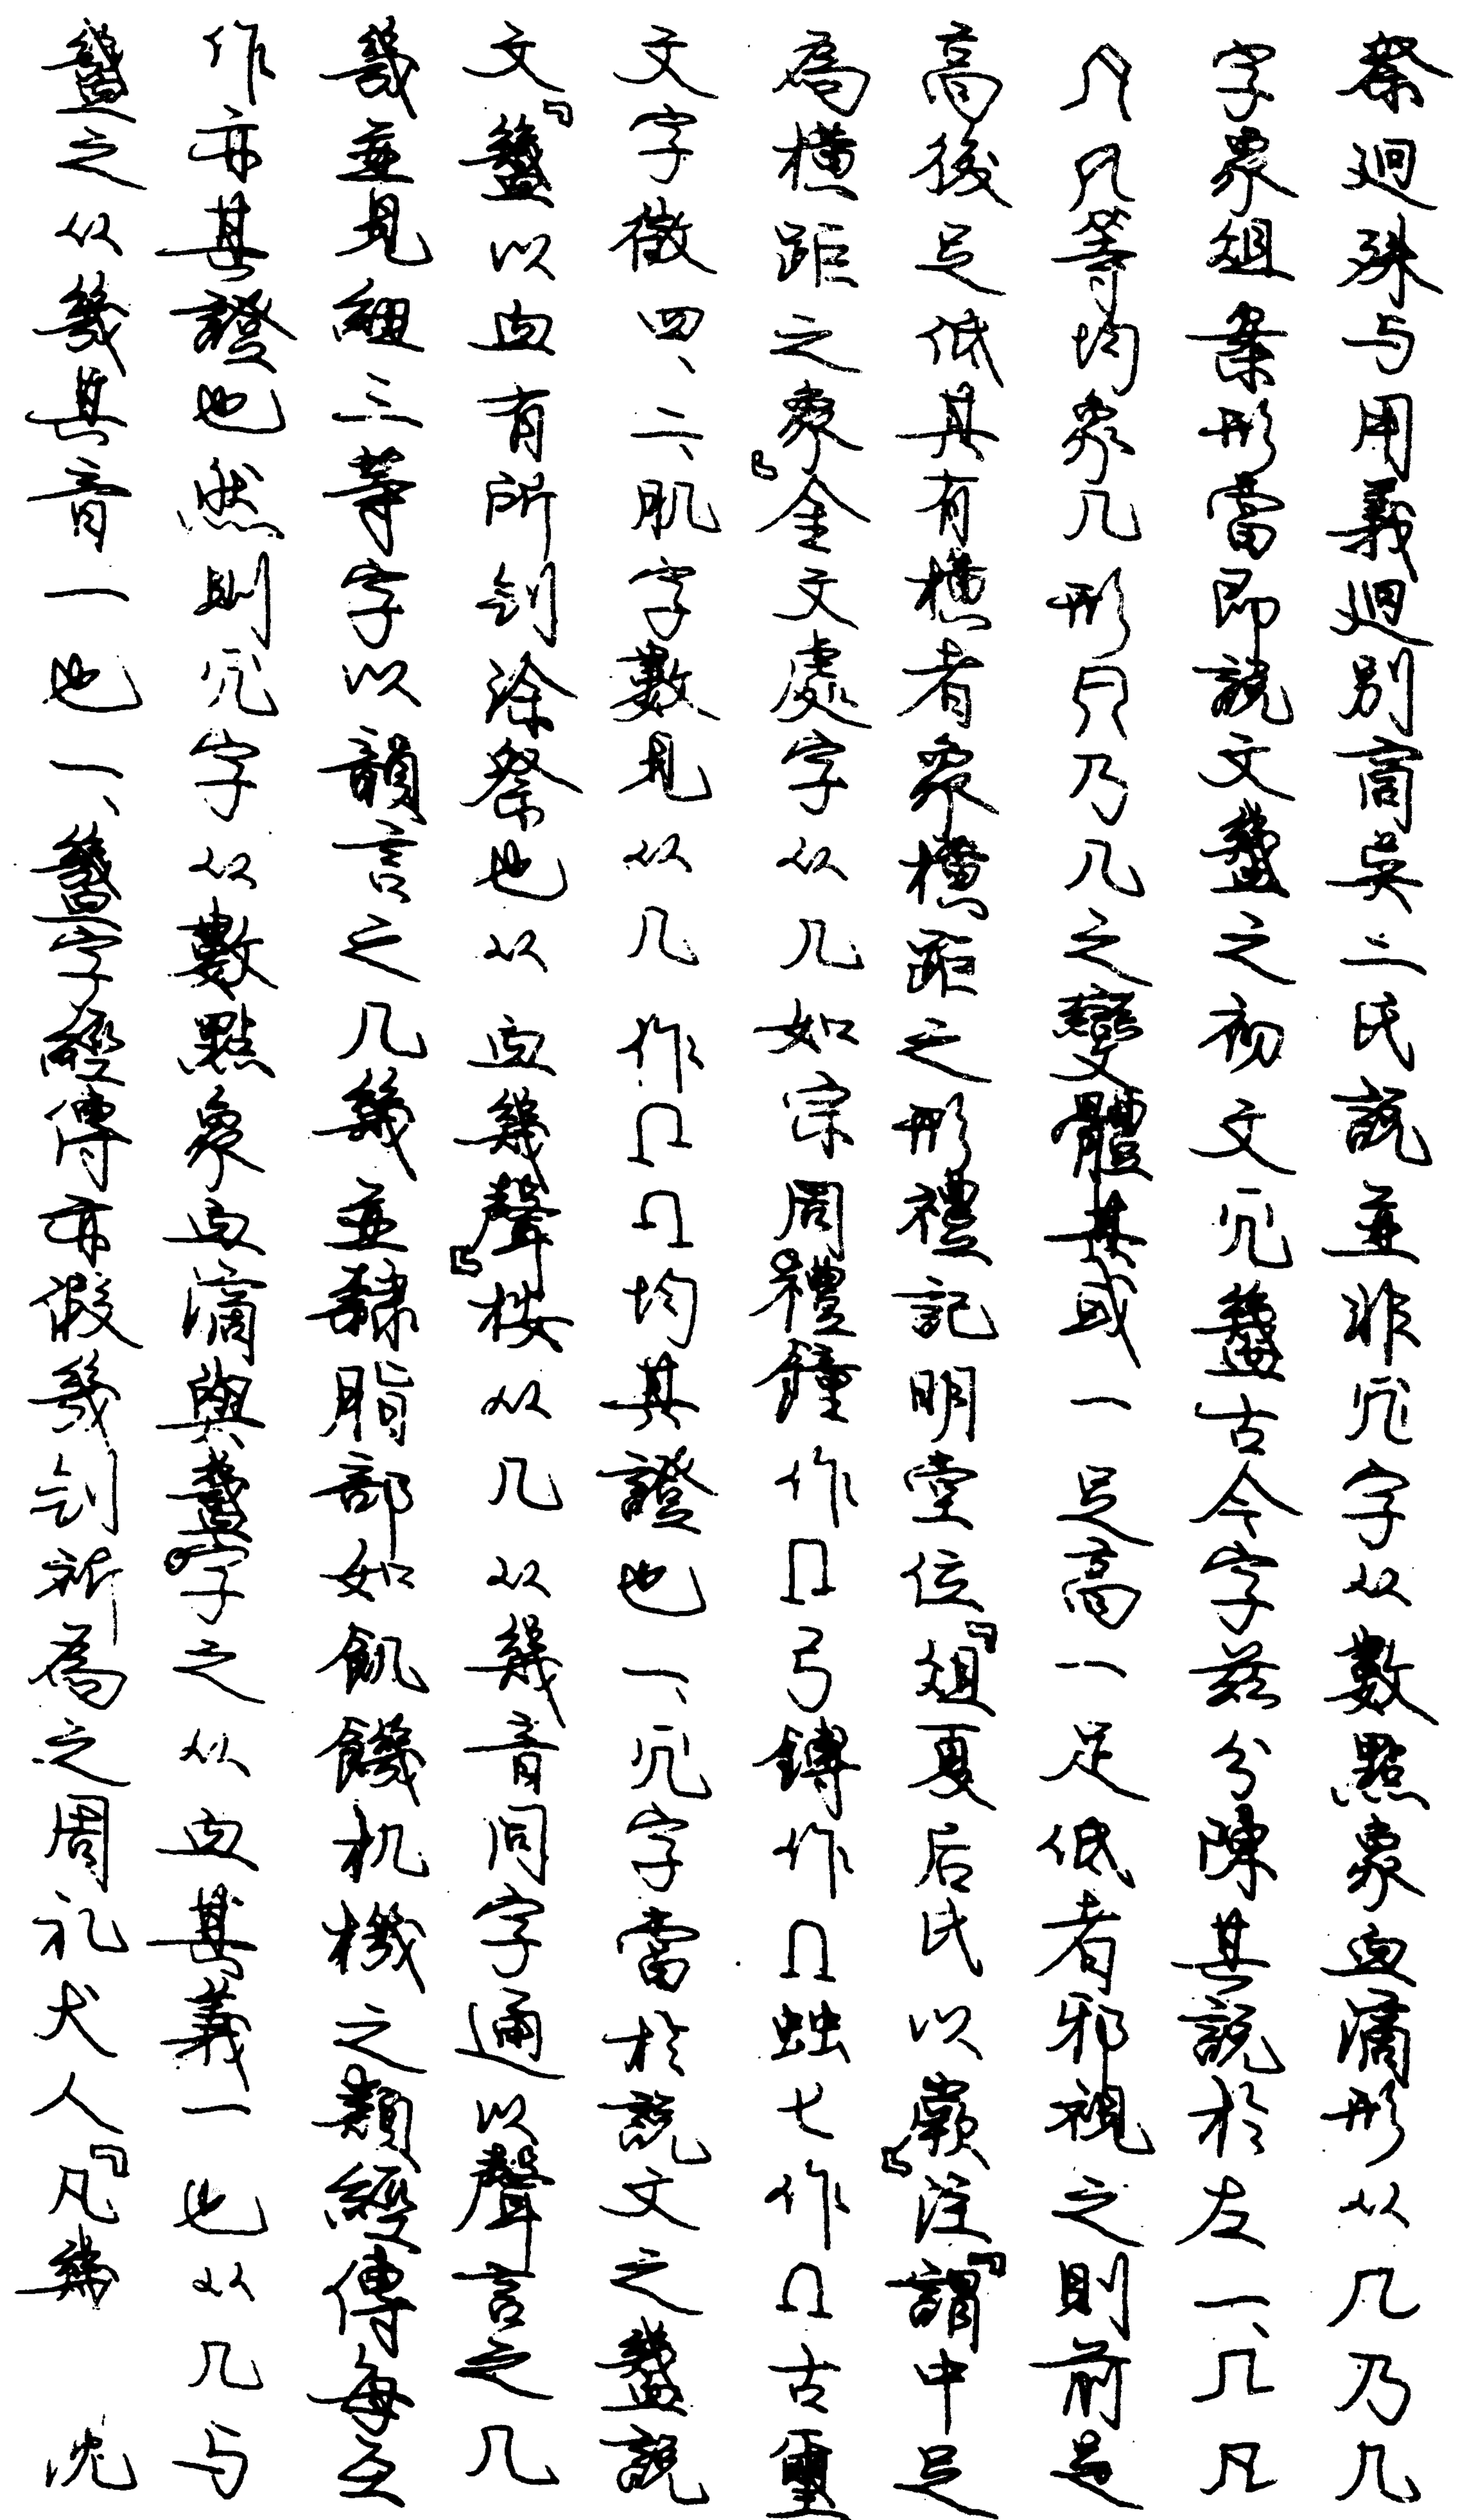 祭迥殊与用義迥別商吳二氏説並非𠘽字从數點象血滴形从几乃几
字象俎案形當即説文𧗒之初文𠘽𧗒古今字茲分陳其説於左一、几凡
等均象几形只乃几之變體其或一足高一足低者邪視之則前足
高後足低其有橫者象橫距之形禮記明堂位『俎夏后氏以嶡』注『謂中足
為橫距之象』金文處字从几如宗周禮鐘作弓鎛作䖵匕作古璽
文字徵四、二、肌字數見从几作均其證也一、𠘽字當於説文之𧗒説
文『𧗒以血有所刉涂祭也从血幾聲』按从几从幾音同字通以聲言之几
幾並見紐三等字以韻言之几幾並隸脂部如飢饑机機之類經傳每互
作亦其證也然則𠘽字从數點象血滴與𧗒字之从血其義一也从几与
𧗒之从幾其音一也一、𧗒字經傳亦假幾刉祈為之周礼犬人『凡幾